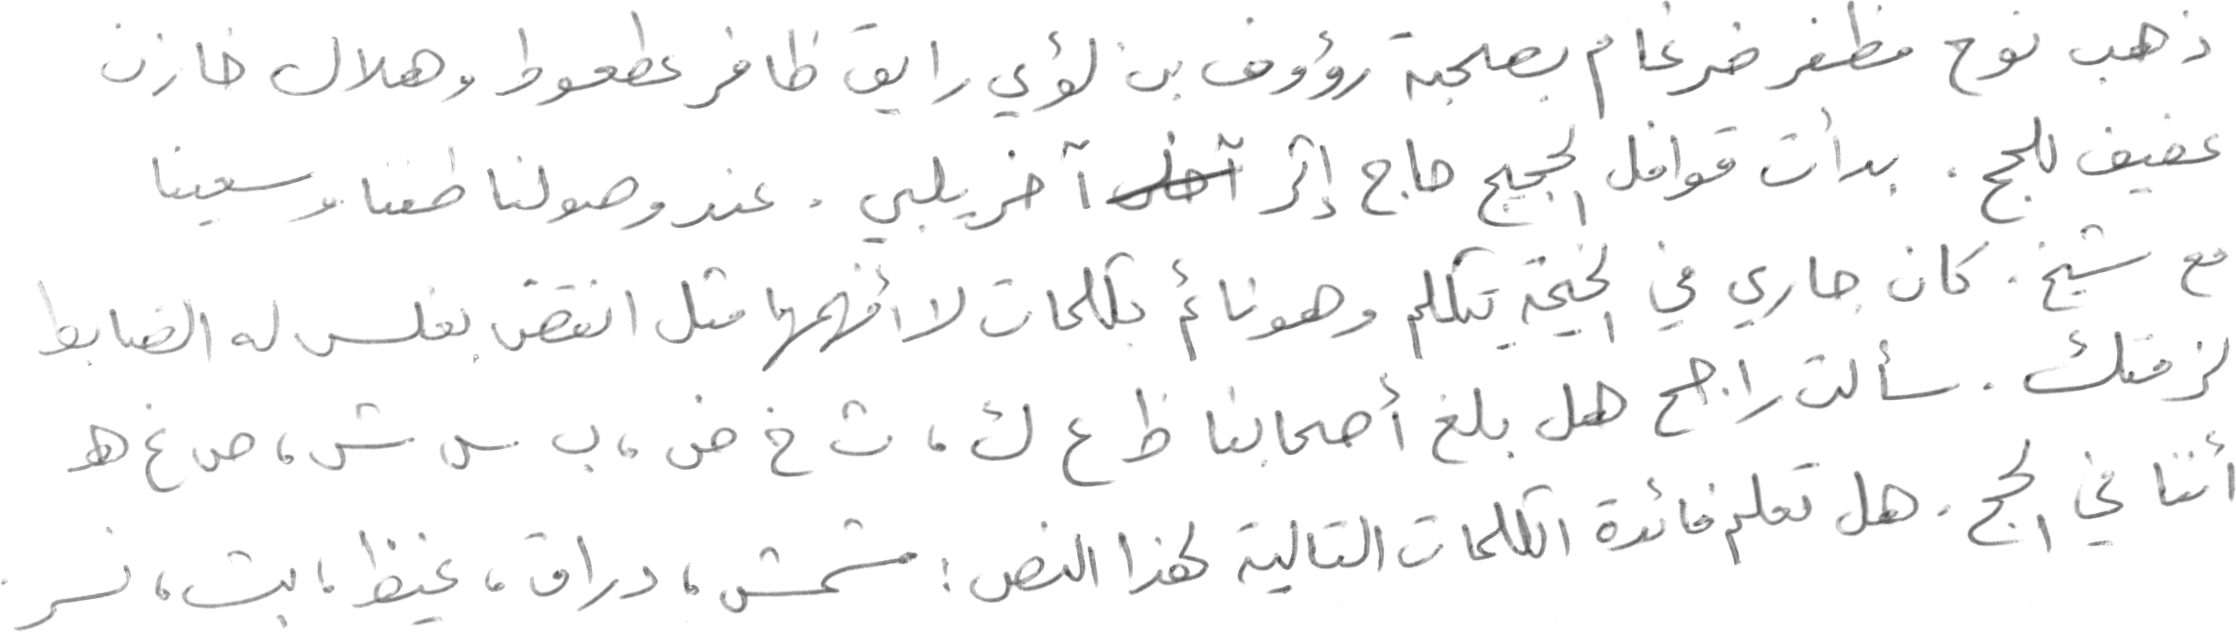 ذهب نوح مظفر ضرغام بصحبة رؤوف بن لؤي رايق ظافر عطعوط وهلال خازن
عفيف للحج . بدأت قوافل الحجيج حاج إثر آخر يلبي . عند وصولنا طفنا وسعينا
مع شيخ . كان جاري في الخيمة يتكلم وهو نائم بكلمات لا أفهمها مثل انقض بغلس له الضابط
لزمتك . سألت راجح هل بلغ أصحابنا ظ ع ك ، ث خ ض ، ب س ش ، ص غ ه
أننا في الحج . هل تعلم فائدة الكلمات التالية لهذا النص : مشمش ، دراق ، غيظ ، بث ، نسر .